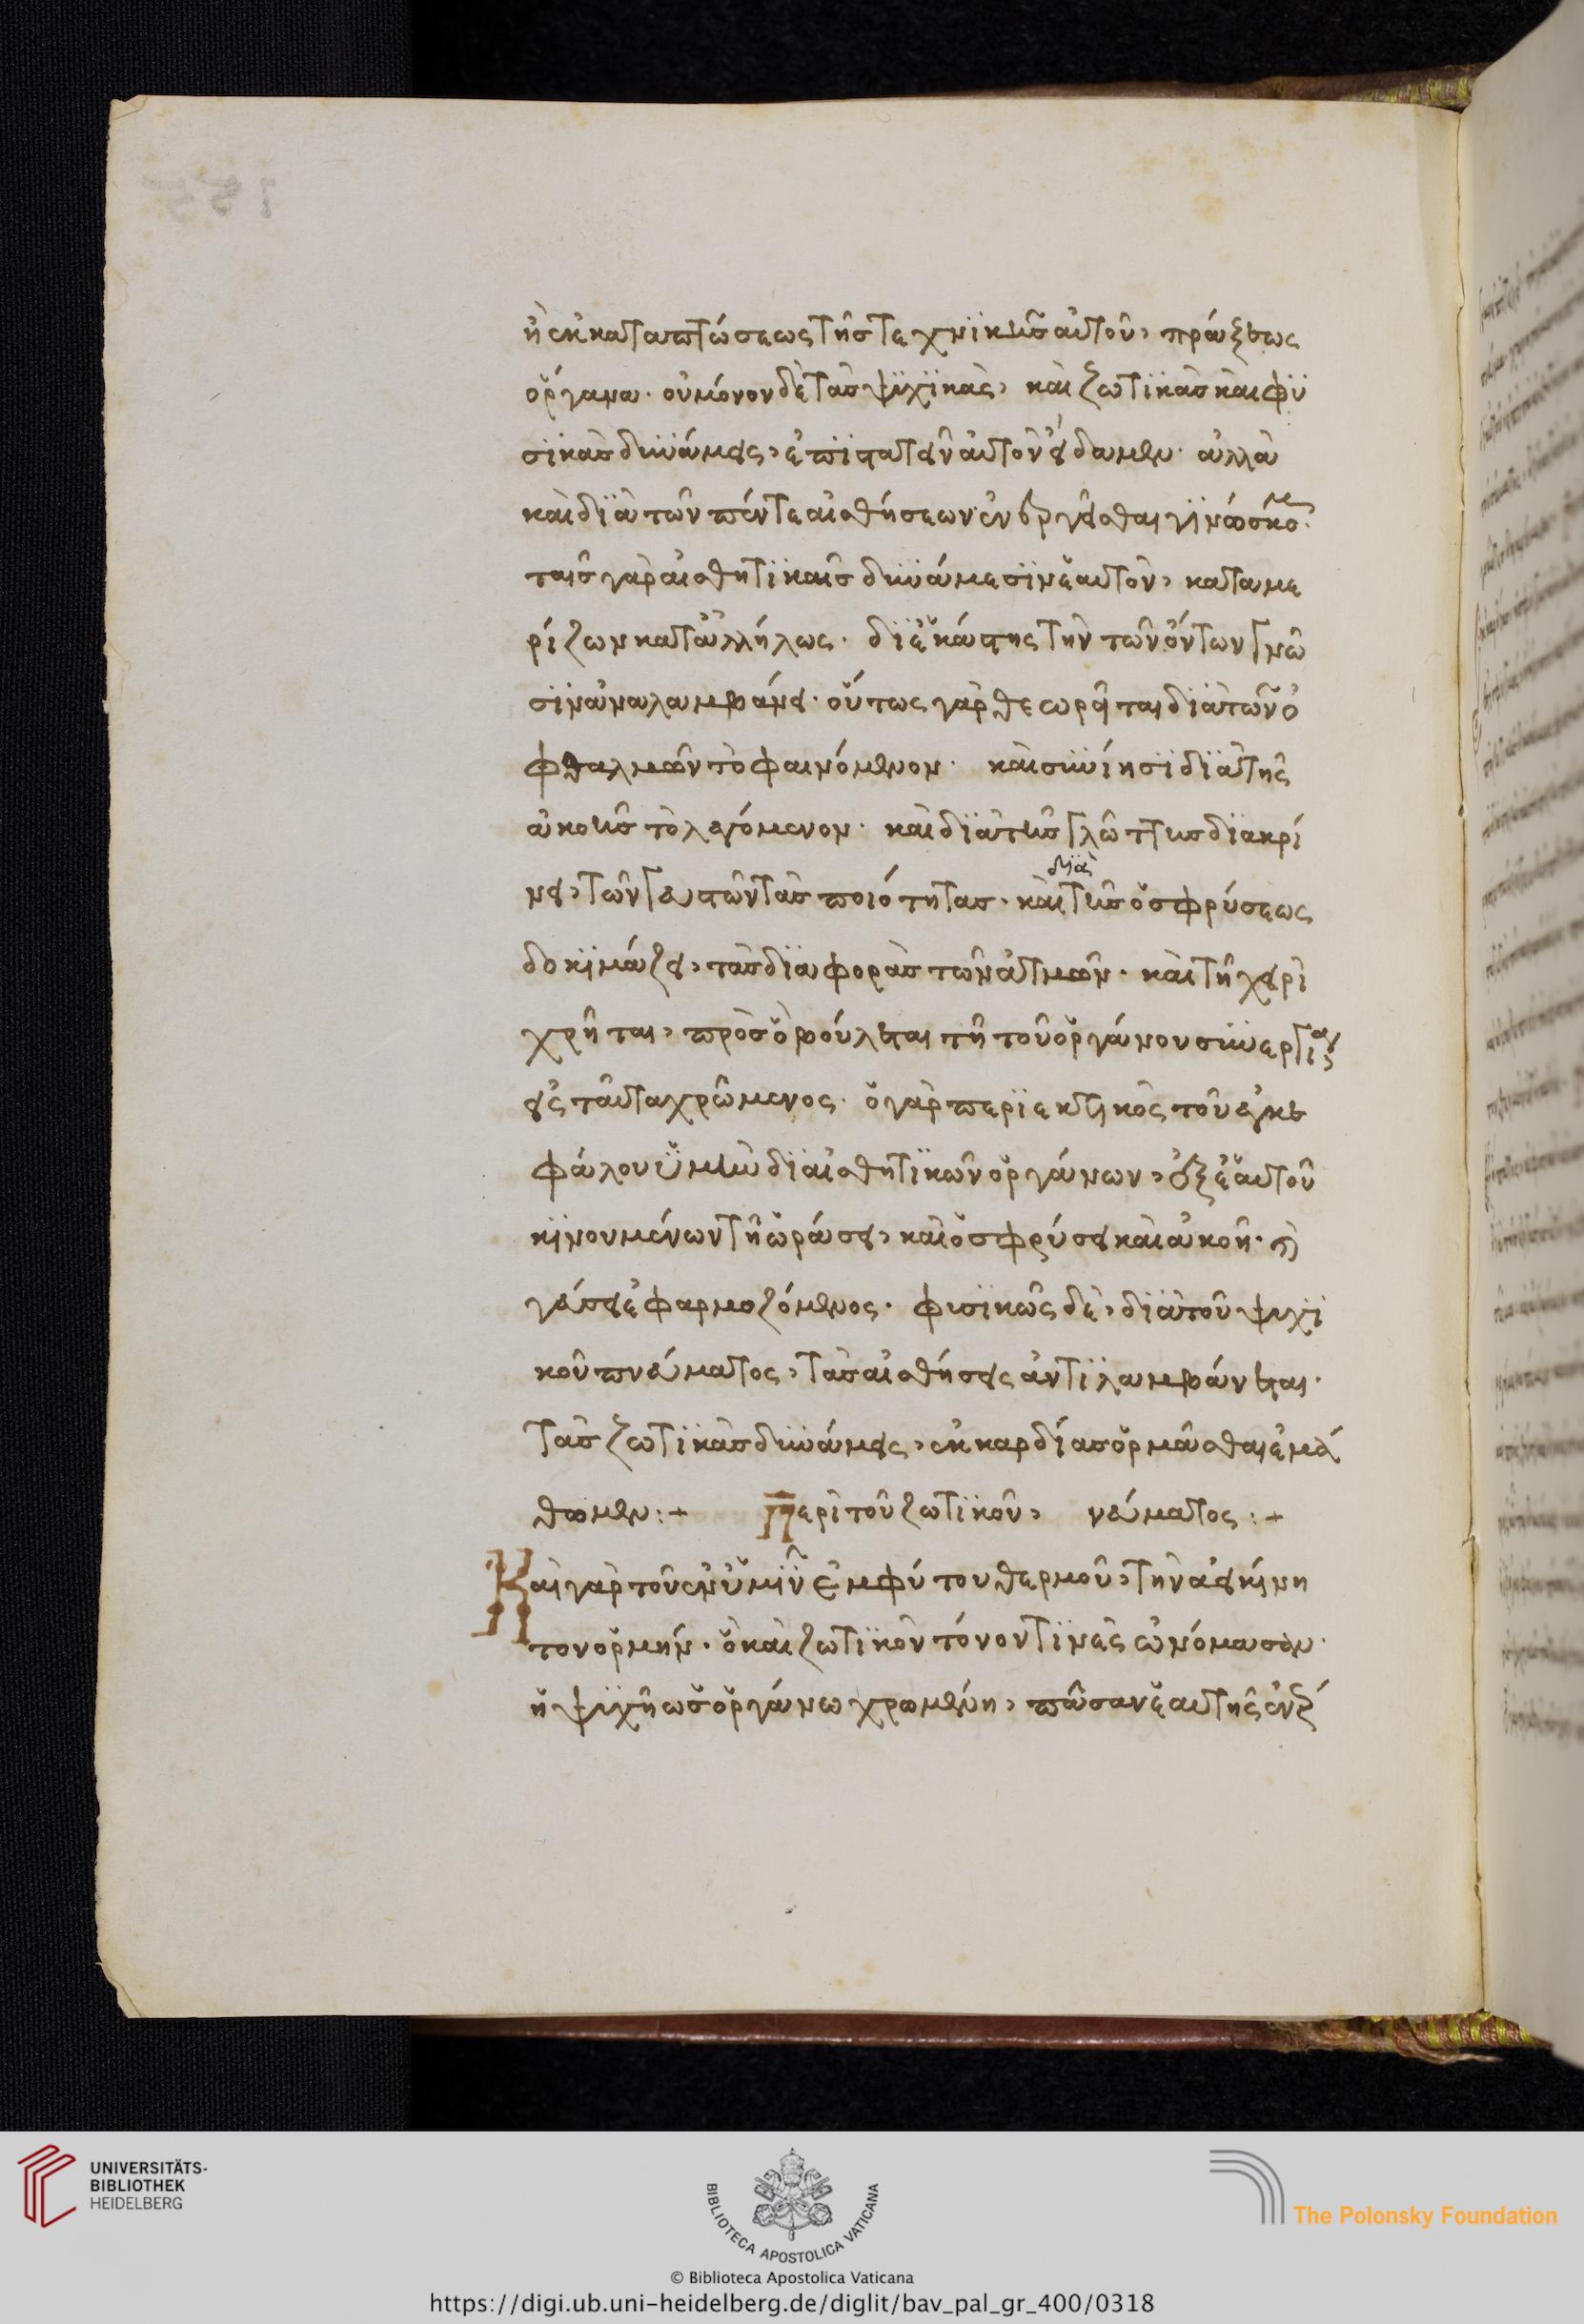 ἢ ἐκ καταπτώσεως τῆς τεχνϊκῆς αὐτοῦ, πράξεως
ὄργανα· οὐ μόνον δὲ τὰς ψϋχϊκὰς, καὶ ζωτϊκὰς καὶ φϋ
σϊκὰς δυνάμεις, ἐπϊστατεῖν αὐτὸν εἴδαμεν· ἀλλὰ
καὶ δϊὰ τῶν πέντε αἰσθήσεων ἐνεργεῖσθαι γϊνώσκομεν·
ταῖς γὰρ αἰσθητϊκαῖς δυνάμεσϊν ἑαυτὸν, καταμε
ρίζων καταλλήλως· δϊ ἑκάστης τὴν τῶν ὄντων γνῶ
σϊν ἀναλαμβάνει· οὕτως γὰρ θεωρῆται δϊὰ τῶν ὀ
φθαλμῶν τὸ φαινόμενον· καὶ συνίησϊ δϊὰ τῆς
ἀκοῆς τὸ λεγόμενον· καὶ δϊὰ τῆς γλώττης δϊακρί
νει, τῶν γευστῶν τὰς ποιότητας· καὶ δϊὰ τῆς ὀσφρύσεως
δοκϊμάζει, τὰς δϊαφορὰς τῶν ἀτμῶν· καὶ τῆ χειρὶ
χρῆται, πρὸς ὃ βούλεται τῆ τοῦ ὀργάνου συνεργίας
εἰς ταῦτα χρώμενος· ὁ γὰρ περϊεκτϊκὸς τοῦ ἐγκε
φάλου ὑμὴν δϊ αἰσθητϊκῶν ὀργάνων, ἐξ ἑαυτοῦ
κϊνουμένων τῆ ὡράσει, καὶ ὀσφρύσει καὶ ἀκοῆ· καὶ
γεύσει ἐφαρμοζόμενος· φυσϊκῶς δὲ, δϊὰ τοῦ ψυχϊ
κοῦ πνεύματος, τὰς αἰσθήσεις ἀντϊλαμβάνεται·
τὰς ζωτϊκὰς δυνάμεις, ἐκ καρδίας ὁρμᾶσθαι ἐμά
θωμεν:+ Περὶ τοῦ ζωτϊκοῦ, νεύματος:+
Καὶ γὰρ τοῦ ἐν ὑμῖν ἐμφύτου θερμοῦ, τὴν ἀεικίνη
τον ὁρμήν· ὃ καὶ ζωτϊκὸν τόνον τϊνὲς ὠνόμασαν·
ἡ ψϋχῆ ὡς ὀργάνω χρωμένη, πᾶσαν ἑαυτῆς ἐνέρ
UNIVERSITÄTS-
BIBLIOTHEK
HEIDELBERG
BIBLIOTECA APOSTOLICA VATICANA
The Polonsky Foundation
© Biblioteca Apostolica Vaticana
https://digi.ub.uni-heidelberg.de/diglit/bav_pal_gr_400/0318